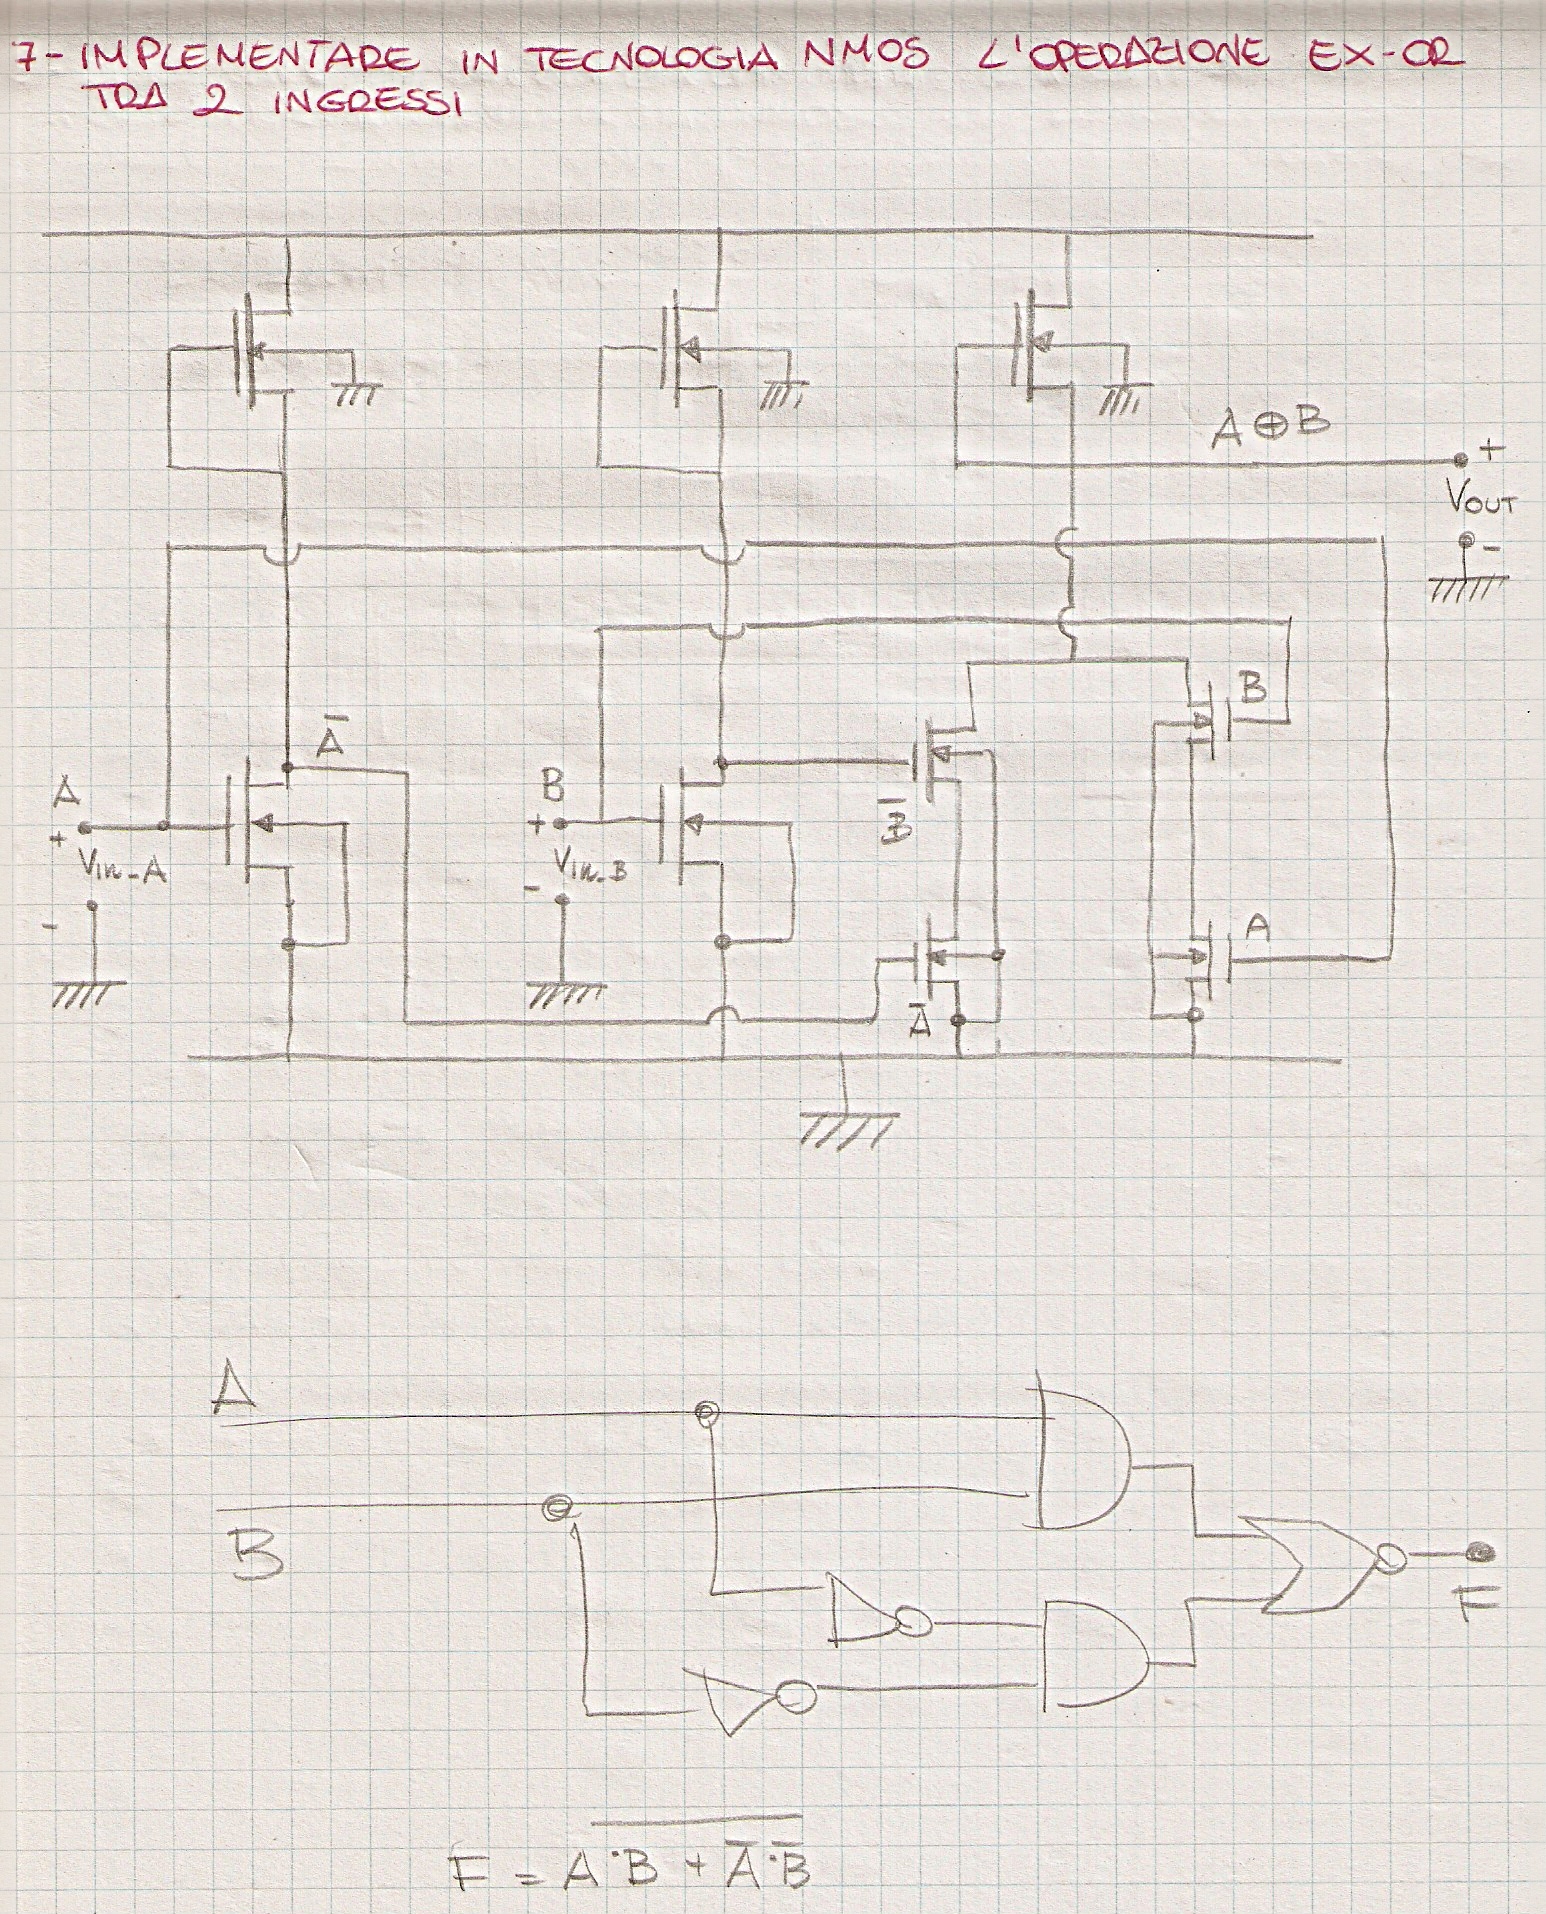 7- IMPLEMENTARE IN TECNOLOGIA NMOS L'OPERAZIONE EX-OR
TRA 2 INGRESSI
A⊕B
+
VOUT
-
B
A̅
A
+
Vin-A
-
B
+
Vin-B
-
B̅
A
A̅
A
B
F
F = \overline{A·B + A̅·B̅}